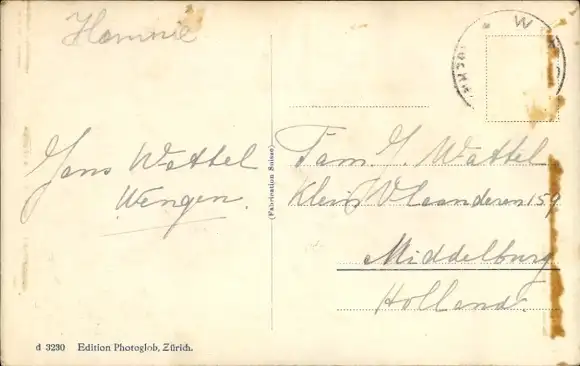 Hammie
W
Jans Wattel
Wengen.
(Fabrication Suisse)
Fam. J. Wattel
Klein Vlaanderen 159
Middelburg
Holland.
d 3230 Edition Photoglob, Zürich.